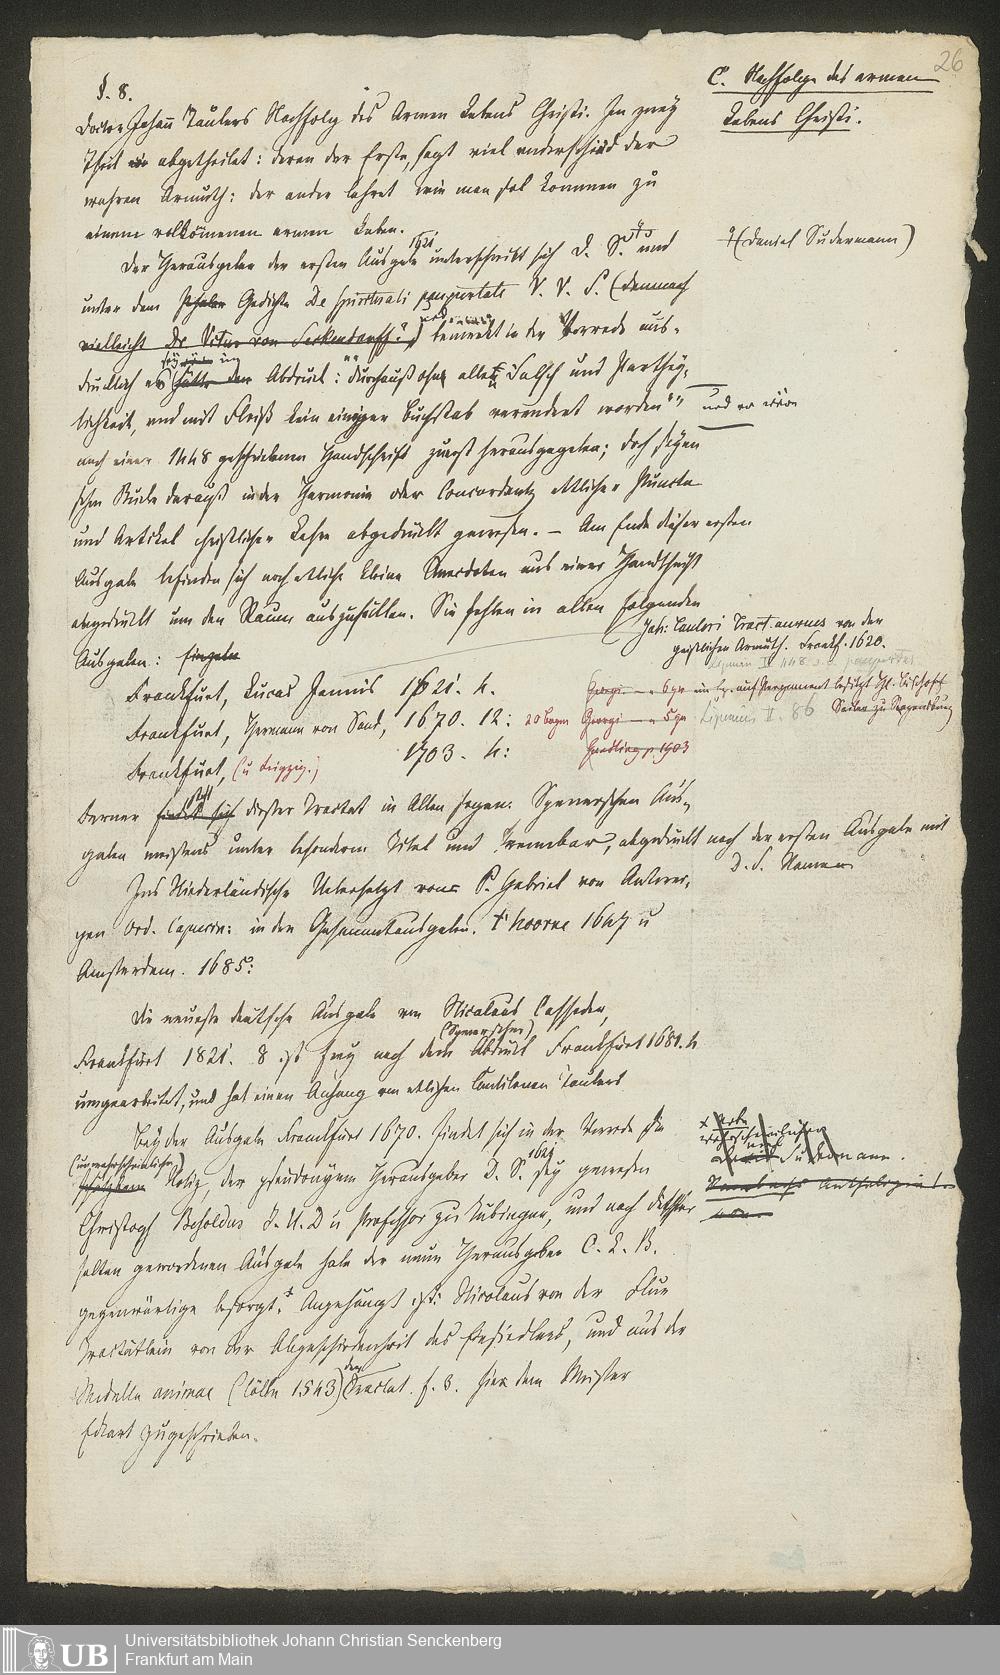 26
C. Nachfolge des armen
Lebens Christi.
§. 8.
Doctor Johann Taulers Nachfolg des Armen Lebens Christi. In zwey
Theil abgetheilet: deren der Erste, sagt viel underschied der
wahren Armuth: der ander lehret wie man sol kommen zu
einem volkomenen armen Leben.
Der Herausgeber der ersten Ausgabe 1621 unterschreibt sich D. S. und
(Daniel Sudermann)
unter dem Gedichte De spirituali paupertate V. V. S. (demnach
vielleicht Dr. Victor von Seckendorff?) bemerkt in der Vorrede aus-
drücklich Abdruck: "durchauß ohne alle Falsch und Parthey-
lichkeit, und mit Fleiß kein einziger Buchstab verendert worden"
und er
nach einer 1448 geschriebenen Handschrift zuerst herausgegeben; doch seyen
schon Stücke darauß in der Harmonia oder Concordantz ettlicher Puncten
und Artikel christlicher Lehre abgedruckt gewesen. – Am Ende dieser ersten
Ausgabe befinden sich noch etliche kleine Anecdoten aus einer Handschrift
abgedruckt um den Raum auszufüllen. Sie fehlen in allen folgenden
Ausgaben:
Joh: Tauleri Tract. aureus von der
geistlichen Armuth. Frankf. 1620.
Frankfurt, Lucas Jennis 1621. 4.
Georgi — 6 gr auf Pergament besitzt Hr. Bischoff
Sailer zu Regensburg
Frankfurt, Hermann von Sand, 1670. 12: 20 Bogen Georgi — 5 gr
Lipenius II. 86
Frankfurt, (u Leipzig.) 1703. 4:
Gundling p. 1903
Ferner dieser Tractat in allen sogen. Spenerschen Aus-
gaben meistens unter besonderm Titel und trennbar, abgedruckt nach der ersten Ausgabe mit
D. S. Namen
Ins Niederländische Uebersetzt von P. Gabriel von Antwer-
pen Ord. Capucin: in den Gesammtausgaben. t'Hoorne 1647 u
Amsterdam. 1685:
Die neueste deutsche Ausgabe von Nicolaus Casseder,
Frankfurt 1821. 8 ist frey nach dem (Spenerschen) Abdruck Frankfurt 1681. 4
umgearbeitet, und hat einen Anhang von etlichen Cantilenen Taulers
Bey der Ausgabe Frankfurt 1670. findet sich in der Vorrede die
(unwahrscheinliche) Notiz, der pseudonyme Herausgeber D. S. 1621 sey gewesen
Sudermann.
Christoph Besoldus J. U. D u Professor zu Tübingen, und nach
selten gewordenen Ausgabe habe der neue Herausgeber C. L. B.
gegenwärtige besorgt. Angehängt ist: Nicolaus von der Flüe
Tractätlein von der Abgeschiedenheit des Einsiedlers, und aus der
Medulla animae (Cölln 1543) der Tractat. f. 8. hier dem Meister
Eckart zugeschrieben.
UB
Universitätsbibliothek Johann Christian Senckenberg
Frankfurt am Main